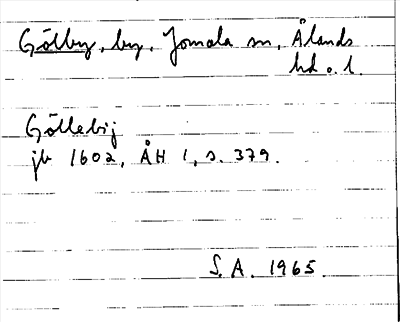 Gölby, by, Jomala sn, Ålands
hd o. l.
Göllebij
jb 1602, ÅH 1, s. 379.
S.A. 1965.